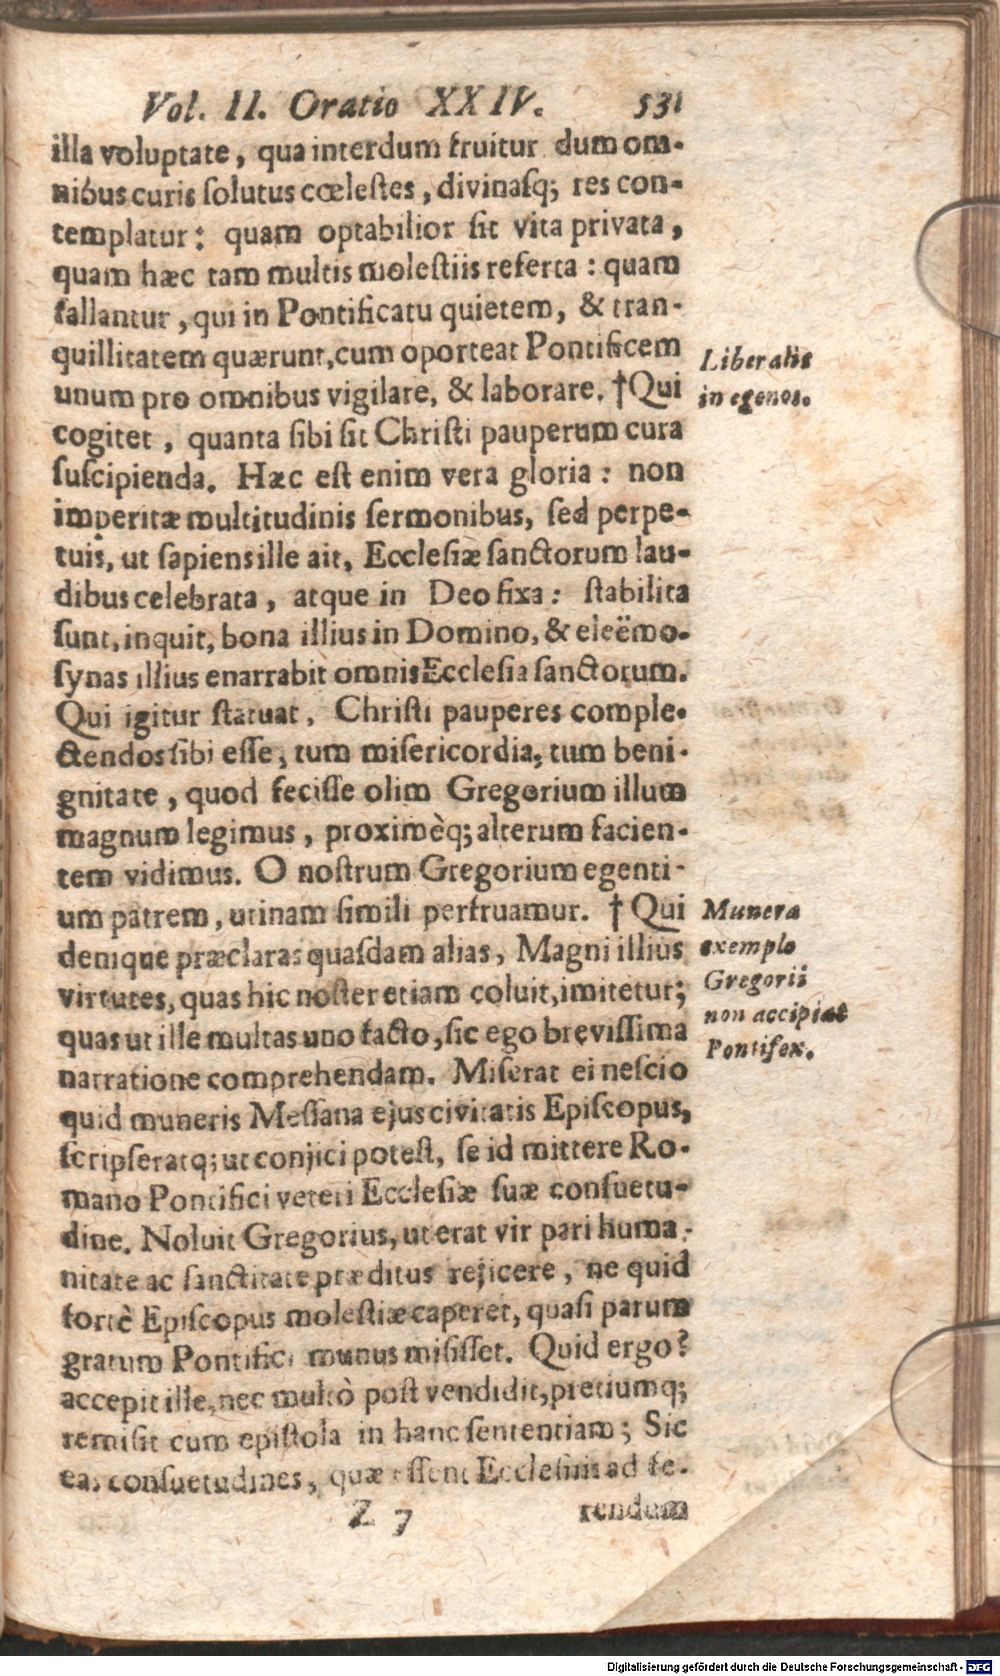 Vol. II. Oratio XXIV. 531
illa voluptate, qua interdum fruitur dum om-
nibus curis solutus cœlestes, divinasq; res con-
templatur: quam optabilior sit vita privata,
quam hæc tam multis molestiis referta: quam
fallantur, qui in Pontificatu quietem, & tran-
quillitatem quærunt, cum oporteat Pontificem
unum pro omnibus vigilare, & laborare. †Qui
cogitet, quanta sibi sit Christi pauperum cura
suscipienda. Hæc est enim vera gloria: non
imperitæ multitudinis sermonibus, sed perpe-
tuis, ut sapiens ille ait, Ecclesiæ sanctorum lau-
dibus celebrata, atque in Deo fixa: stabilita
sunt, inquit, bona illius in Domino, & eleëmo-
synas illius enarrabit omnis Ecclesia sanctorum.
Qui igitur statuat, Christi pauperes comple-
ctendos sibi esse, tum misericordia, tum beni-
gnitate, quod fecisse olim Gregorium illum
magnum legimus, proximèq; alterum facien-
tem vidimus. O nostrum Gregorium egenti-
um patrem, utinam simili perfruamur. † Qui
denique præclaras quasdam alias, Magni illius
virtutes, quas hic noster etiam coluit, imitetur;
quas ut ille multas uno facto, sic ego brevissima
narratione comprehendam. Miserat ei nescio
quid muneris Messana ejus civitatis Episcopus,
scripseratq; ut conjici potest, se id mittere Ro-
mano Pontifici veteri Ecclesiæ suæ consuetu-
dine. Noluit Gregorius, ut erat vir pari huma-
nitate ac sanctitate præditus rejicere, ne quid
fortè Episcopus molestiæ caperet, quasi parum
gratum Pontifici munus misisset. Quid ergo?
accepit ille, nec multò post vendidit, pretiumq;
remisit cum epistola in hanc sententiam; Sic
eas consuetudines, quæ essent Ecclesiis ad fe-
Z 7 rendum
Liberalis
in egenos.
Munera
exemplo
Gregorii
non accipiat
Pontifex.
Digitalisierung gefördert durch die Deutsche Forschungsgemeinschaft - DFG